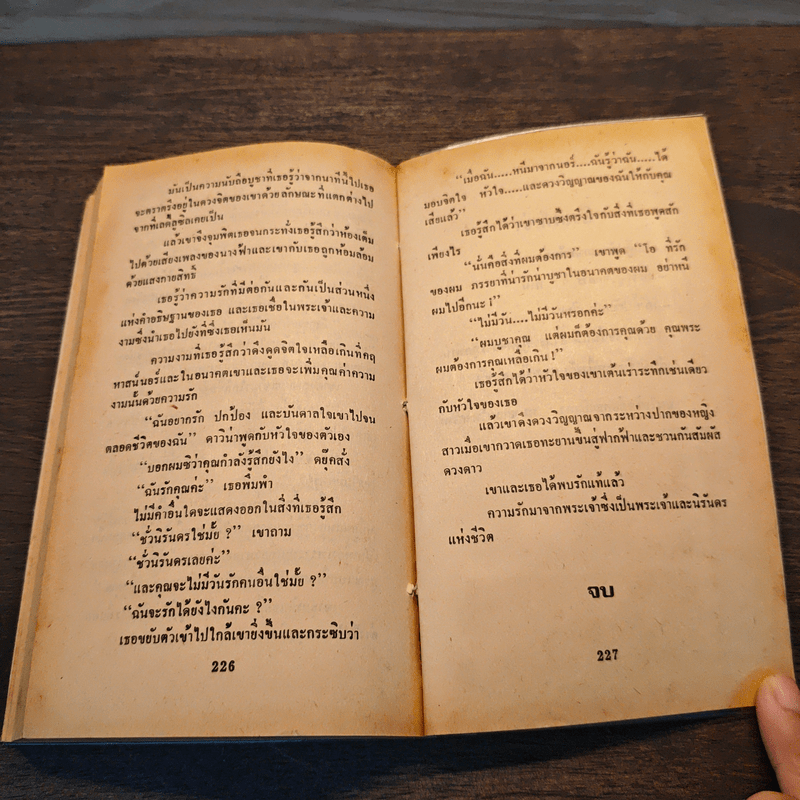 มันเป็นความนับถือบูชาที่เธอรู้ว่าจากนาทีนี้ไปเธอ
จะตราตรึงอยู่ในดวงจิตของเขาด้วยลักษณะที่แตกต่างไป
จากที่เลดี้ลูซิลเคยเป็น
แล้วเขาจึงจุมพิตเธอจนกระทั่งเธอรู้สึกว่าห้องเต็ม
ไปด้วยเสียงเพลงของนางฟ้าและเขากับเธอถูกห้อมล้อม
ด้วยแสงกายสิทธิ์
เธอรู้ว่าความรักที่มีต่อกันและกันเป็นส่วนหนึ่ง
แห่งคำอธิษฐานของเธอ และเธอเชื่อในพระเจ้าและความ
งามซึ่งนำเธอไปยังที่ซึ่งเธอเห็นมัน
ความงามที่เธอรู้สึกว่าดึงดูดจิตใจเหลือเกินที่คฤ
หาสน์นอร์และในอนาคตเขาและเธอจะเพิ่มคุณค่าความ
งามนั้นด้วยความรัก
“ฉันอยากรัก ปกป้อง และบันดาลใจเขาไปจน
ตลอดชีวิตของฉัน” ดาวิน่าพูดกับหัวใจของตัวเอง
“บอกผมซิว่าคุณกำลังรู้สึกยังไง” ดยุ๊คสั่ง
“ฉันรักคุณค่ะ” เธอพึมพำ
ไม่มีคำอื่นใดจะแสดงออกในสิ่งที่เธอรู้สึก
“ชั่วนิรันดรใช่มั้ย ?” เขาถาม
“ชั่วนิรันดรเลยค่ะ”
“และคุณจะไม่มีวันรักคนอื่นใช่มั้ย ?”
“ฉันจะรักได้ยังไงกันคะ ?”
เธอขยับตัวเข้าไปใกล้เขายิ่งขึ้นและกระซิบว่า
226
“เมื่อฉัน.....หนีมาจากนอร์....ฉันรู้ว่าฉัน.....ได้
มอบจิตใจ หัวใจ.....และดวงวิญญาณของฉันให้กับคุณ
เสียแล้ว”
เธอรู้สึกได้ว่าเขาซาบซึ้งตรึงใจกับสิ่งที่เธอพูดสัก
เพียงไร
“นั่นคือสิ่งที่ผมต้องการ” เขาพูด “โอ ที่รัก
ของผม ภรรยาที่น่ารักน่าบูชาในอนาคตของผม อย่าหนี
ผมไปอีกนะ !”
“ไม่มีวัน....ไม่มีวันหรอกค่ะ”
“ผมบูชาคุณ แต่ผมก็ต้องการคุณด้วย คุณพระ
ผมต้องการคุณเหลือเกิน !”
เธอรู้สึกได้ว่าหัวใจของเขาเต้นเร่าระทึกเช่นเดียว
กับหัวใจของเธอ
แล้วเขาดึงดวงวิญญาณจากระหว่างปากของหญิง
สาวเมื่อเขากวาดเธอทะยานขึ้นสู่ฟากฟ้าและชวนกันสัมผัส
ดวงดาว
เขาและเธอได้พบรักแท้แล้ว
ความรักมาจากพระเจ้าซึ่งเป็นพระเจ้าและนิรันดร
แห่งชีวิต
จบ
227